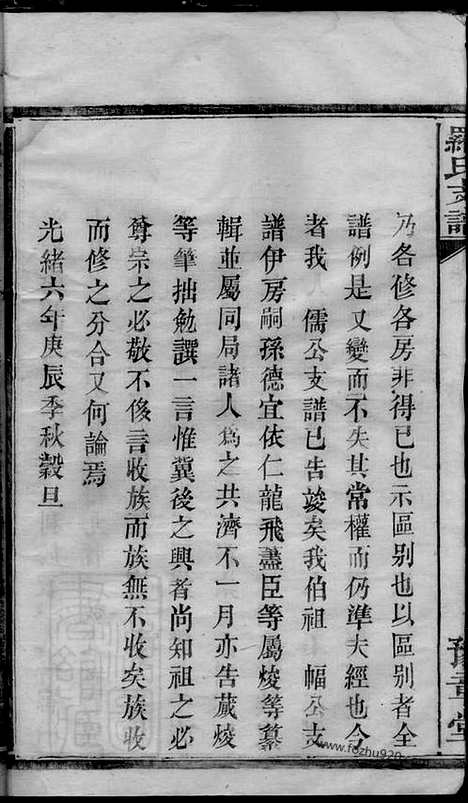 羅氏支譜
豫章堂
乃各修各房非得已也示區别也以區别者全
譜例是又變而不失其常權而仍準夫經也今
者我 儒公支譜已告竣矣我伯祖 幅公支
譜伊房嗣孫德宜依仁龍飛藎臣等屬焌等纂
輯並屬同局諸人爲之共濟不一月亦告蕆焌
等筆拙勉譔一言惟冀後之興者尚知祖之必
尊宗之必敬不俟言收族而族無不收矣族收
而修之分合又何論焉
光緒六年庚辰季秋穀旦
www.fozhu920.com